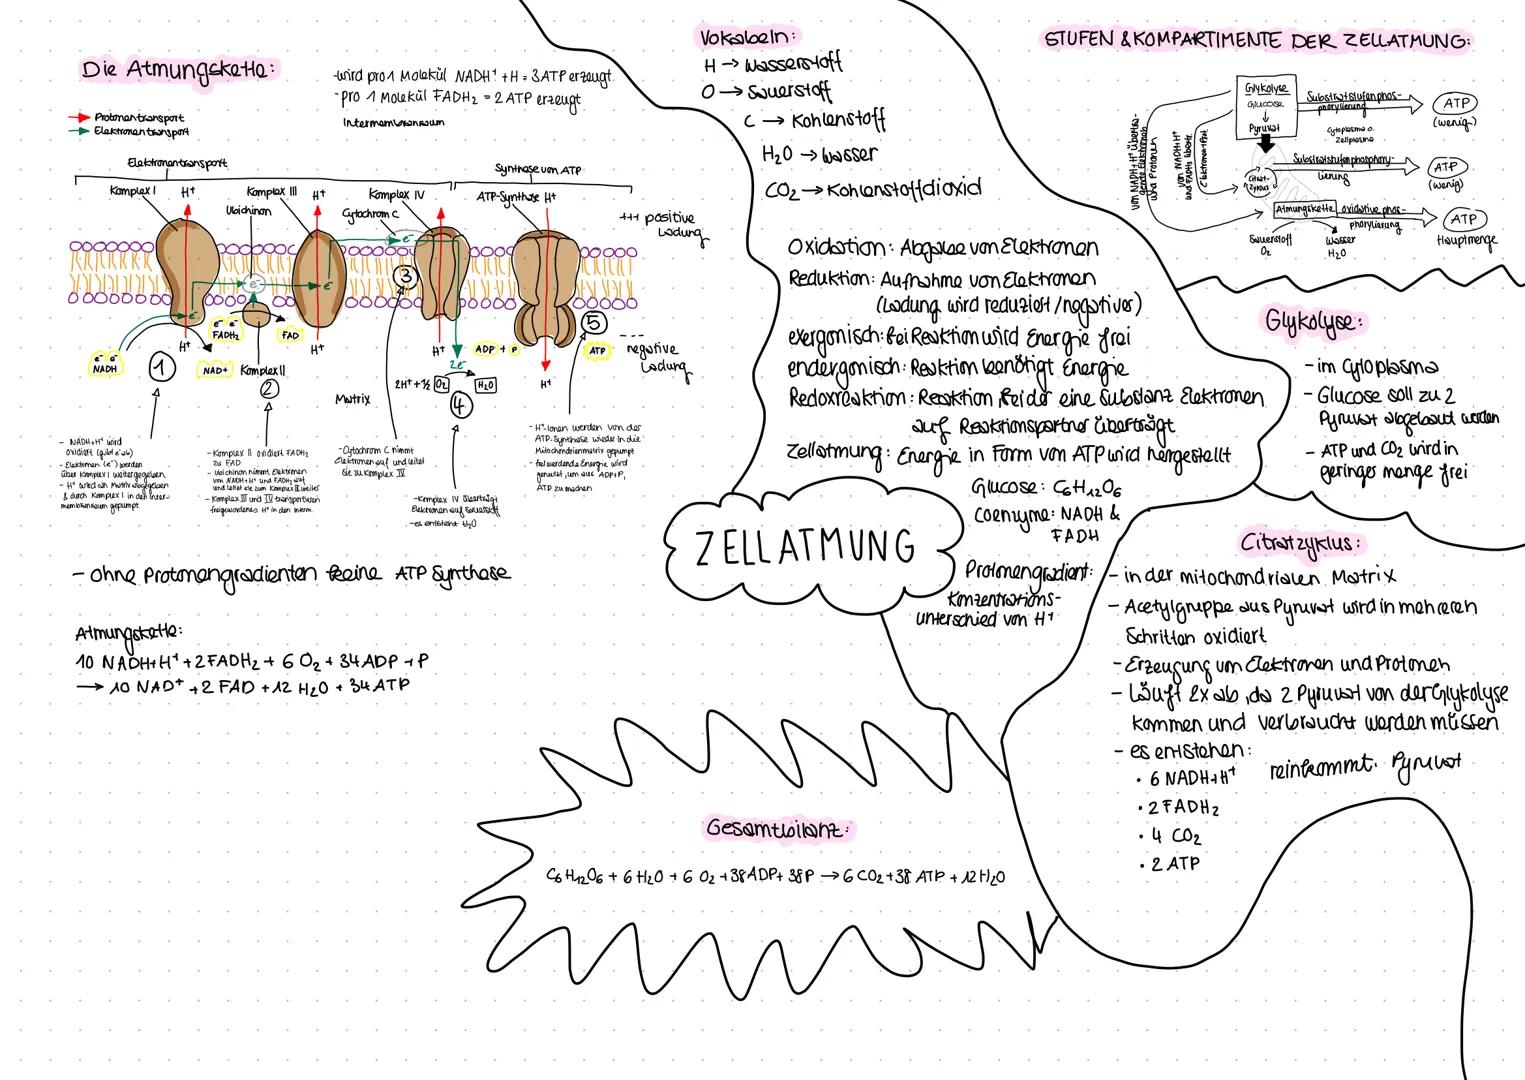 Die Atmungskette:
-wird pro 1 Molekül NADH⁺ +H = 3 ATP erzeugt
-pro 1 Molekül FADH₂ = 2 ATP erzeugt
Intermembranraum
Protonentransport
Elektronentransport
Elektronentransport
Synthese von ATP
Komplex I
H⁺
Ubichinon
Komplex III
H⁺
Komplex IV
Cytochrom C
ATP-Synthase H⁺
+++ positive
Ladung
e⁻
e⁻
e⁻
e⁻
3
5
e⁻ e⁻
NADH
1
H⁺
NAD+
e⁻ e⁻
FADH₂
FAD
Komplex II
2
H⁺
H⁺
2e⁻
ADP + P
ATP
--- negative
Ladung
Matrix
2H⁺ + ½ O₂
H₂O
4
H⁺
- NADH+H⁺ wird
oxidiert (gibt e⁻ ab)
- Elektronen (e⁻) werden
über Komplex I weitergegeben
- H⁺ wird an Matrix abgegeben
& durch Komplex I in den Inter-
membranraum gepumpt
- Komplex II oxidiert FADH₂
zu FAD
- Ubichinon nimmt Elektronen
von NADH+H⁺ und FADH₂ auf
und leitet sie zum Komplex III weiter
- Komplex III und IV transportieren
freigewordenes H⁺ in den Interm.
-Cytochrom C nimmt
Elektronen auf und leitet
sie zu Komplex IV
-Komplex IV überträgt
Elektronen auf Sauerstoff
-es entsteht H₂O
- H⁺-Ionen werden von der
ATP-Synthase wieder in die
Mitochondrienmatrix gepumpt
- freiwerdende Energie wird
genutzt, um aus ADP+P,
ATP zu machen
- ohne Protonengradienten keine ATP Synthase
Atmungskette:
10 NADH+H⁺ + 2 FADH₂ + 6 O₂ + 34 ADP + P
→ 10 NAD⁺ + 2 FAD + 12 H₂O + 34 ATP
Vokabeln:
H → Wasserstoff
O → Sauerstoff
C → Kohlenstoff
H₂O → Wasser
CO₂ → Kohlenstoffdioxid
Oxidation: Abgabe von Elektronen
Reduktion: Aufnahme von Elektronen
(Ladung wird reduziert/negativer)
exergonisch: bei Reaktion wird Energie frei
endergonisch: Reaktion benötigt Energie
Redoxreaktion: Reaktion, bei der eine Substanz Elektronen
auf Reaktionspartner überträgt
Zellatmung: Energie in Form von ATP wird hergestellt
Glucose: C₆H₁₂O₆
Coenzyme: NADH &
FADH
Protonengradient:
Konzentrations-
unterschied von H⁺
ZELLATMUNG
STUFEN & KOMPARTIMENTE DER ZELLATMUNG:
Glykolyse
Glucose
↓
Pyruvat
Substratstufenphos-
phorylierung
ATP
(wenig)
Cytoplasma o.
Zellplasma
von NADH+H⁺ übertra-
gende Elektronen
und Protonen
von NADH+H⁺
und FADH₂ übertr.
Elektronen+Prot
Citrat-
Zyklus
Substratstufenphosphory-
lierung
ATP
(wenig)
Atmungskette
oxidative phos-
phorylierung
ATP
Hauptmenge
Sauerstoff
O₂
Wasser
H₂O
Glykolyse:
- im Cytoplasma
- Glucose soll zu 2
Pyruvat abgebaut werden
- ATP und CO₂ wird in
geringer menge frei
Citratzyklus:
- in der mitochondrialen Matrix
- Acetylgruppe aus Pyruvat wird in mehreren
Schritten oxidiert
- Erzeugung von Elektronen und Protonen
- Läuft 2x ab, da 2 Pyruvat von der Glykolyse
kommen und verbraucht werden müssen
- es entstehen:
• 6 NADH+H⁺
reinkommt: Pyruvat
• 2 FADH₂
• 4 CO₂
• 2 ATP
Gesamtbilanz:
C₆H₁₂O₆ + 6 H₂O + 6 O₂ + 38 ADP + 38 P → 6 CO₂ + 38 ATP + 12 H₂O